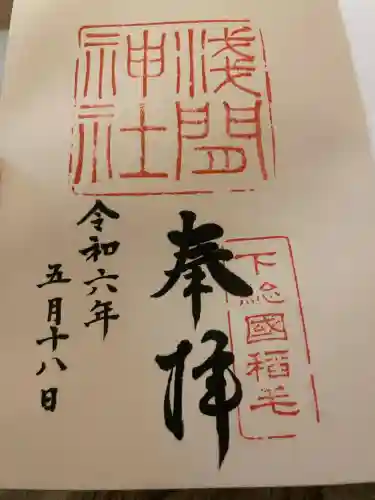 浅間
神社
奉拝
下総國稲毛
令和六年
五月十八日